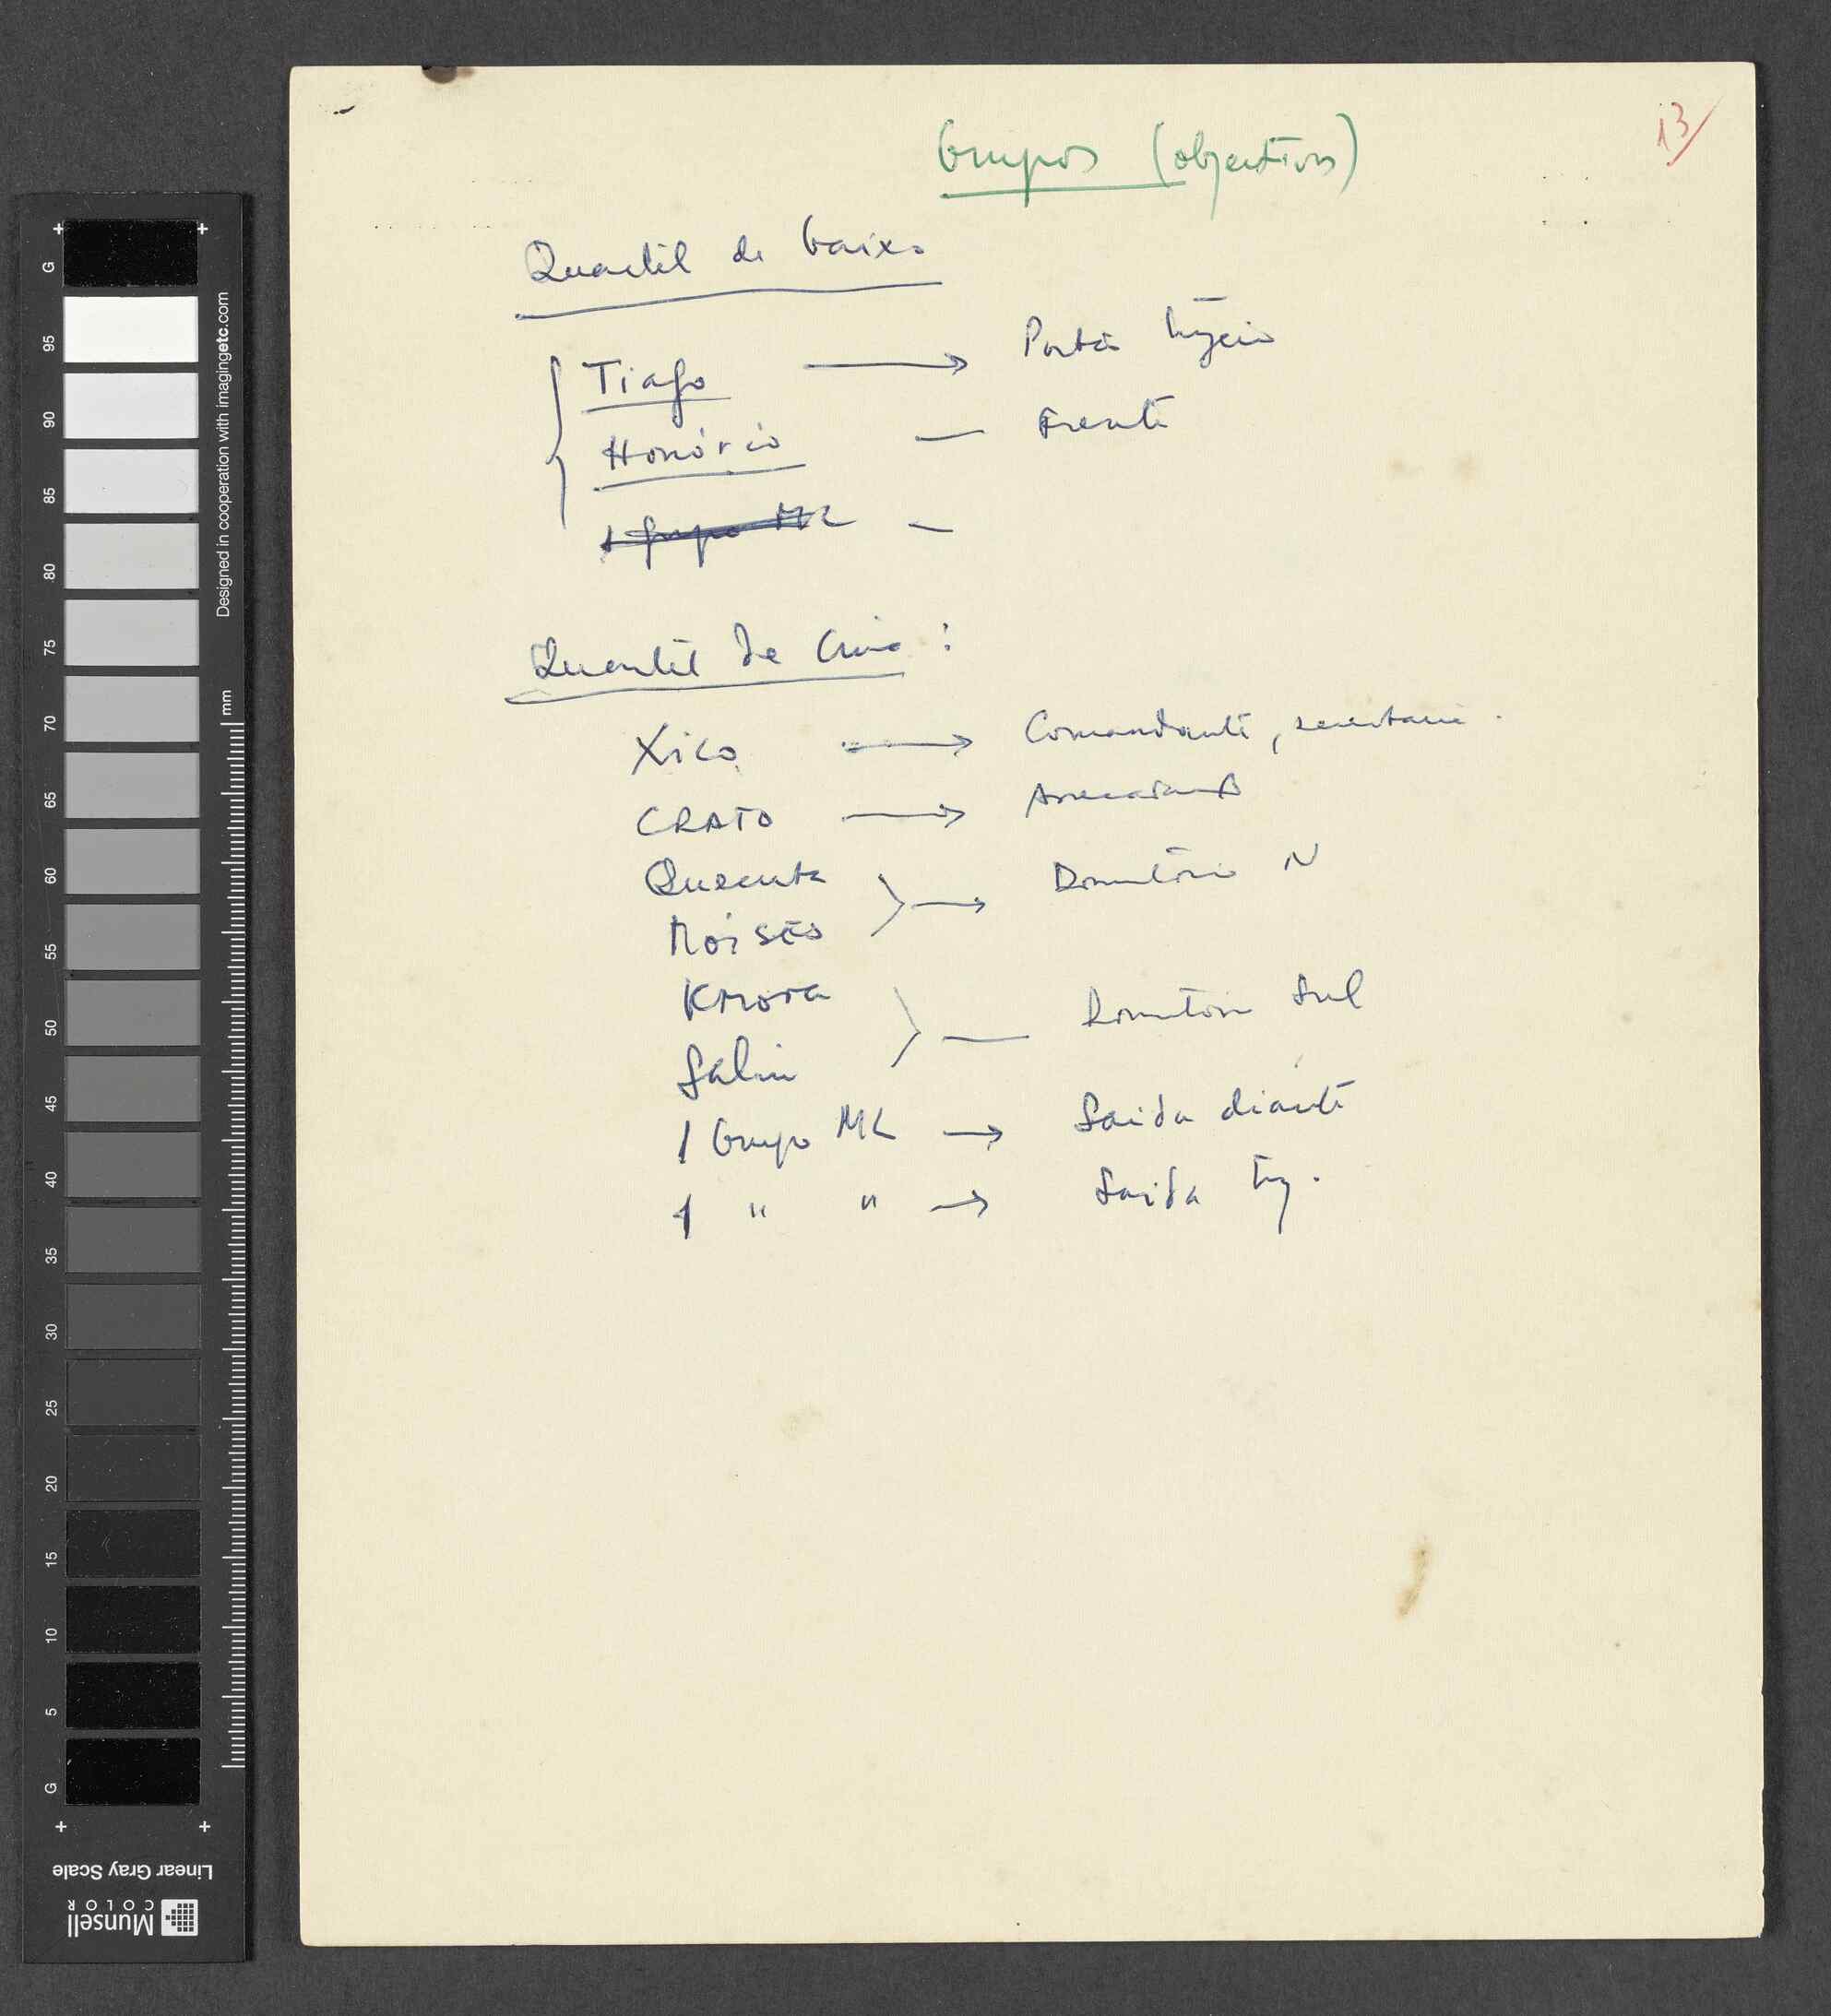 13
Grupos (objectivos)
Quartel de baixo
Tiago → Portão
Honório — Frente
1 grupo ML —
Quartel de Cima :
Xico → Comandante, secretaria.
CRATO →
Quecuta
Moisés } → Dormitório N
Kmora
Salin } — Dormitório Sul
1 Grupo ML → Saída diante
1 " " → Saída
G 95 90 85 80 75 70 65 60 55 50 45 40 35 30 25 20 15 10 5 G
Designed in cooperation with imagingetc.com
mm
Linear Gray Scale
Munsell
COLOR